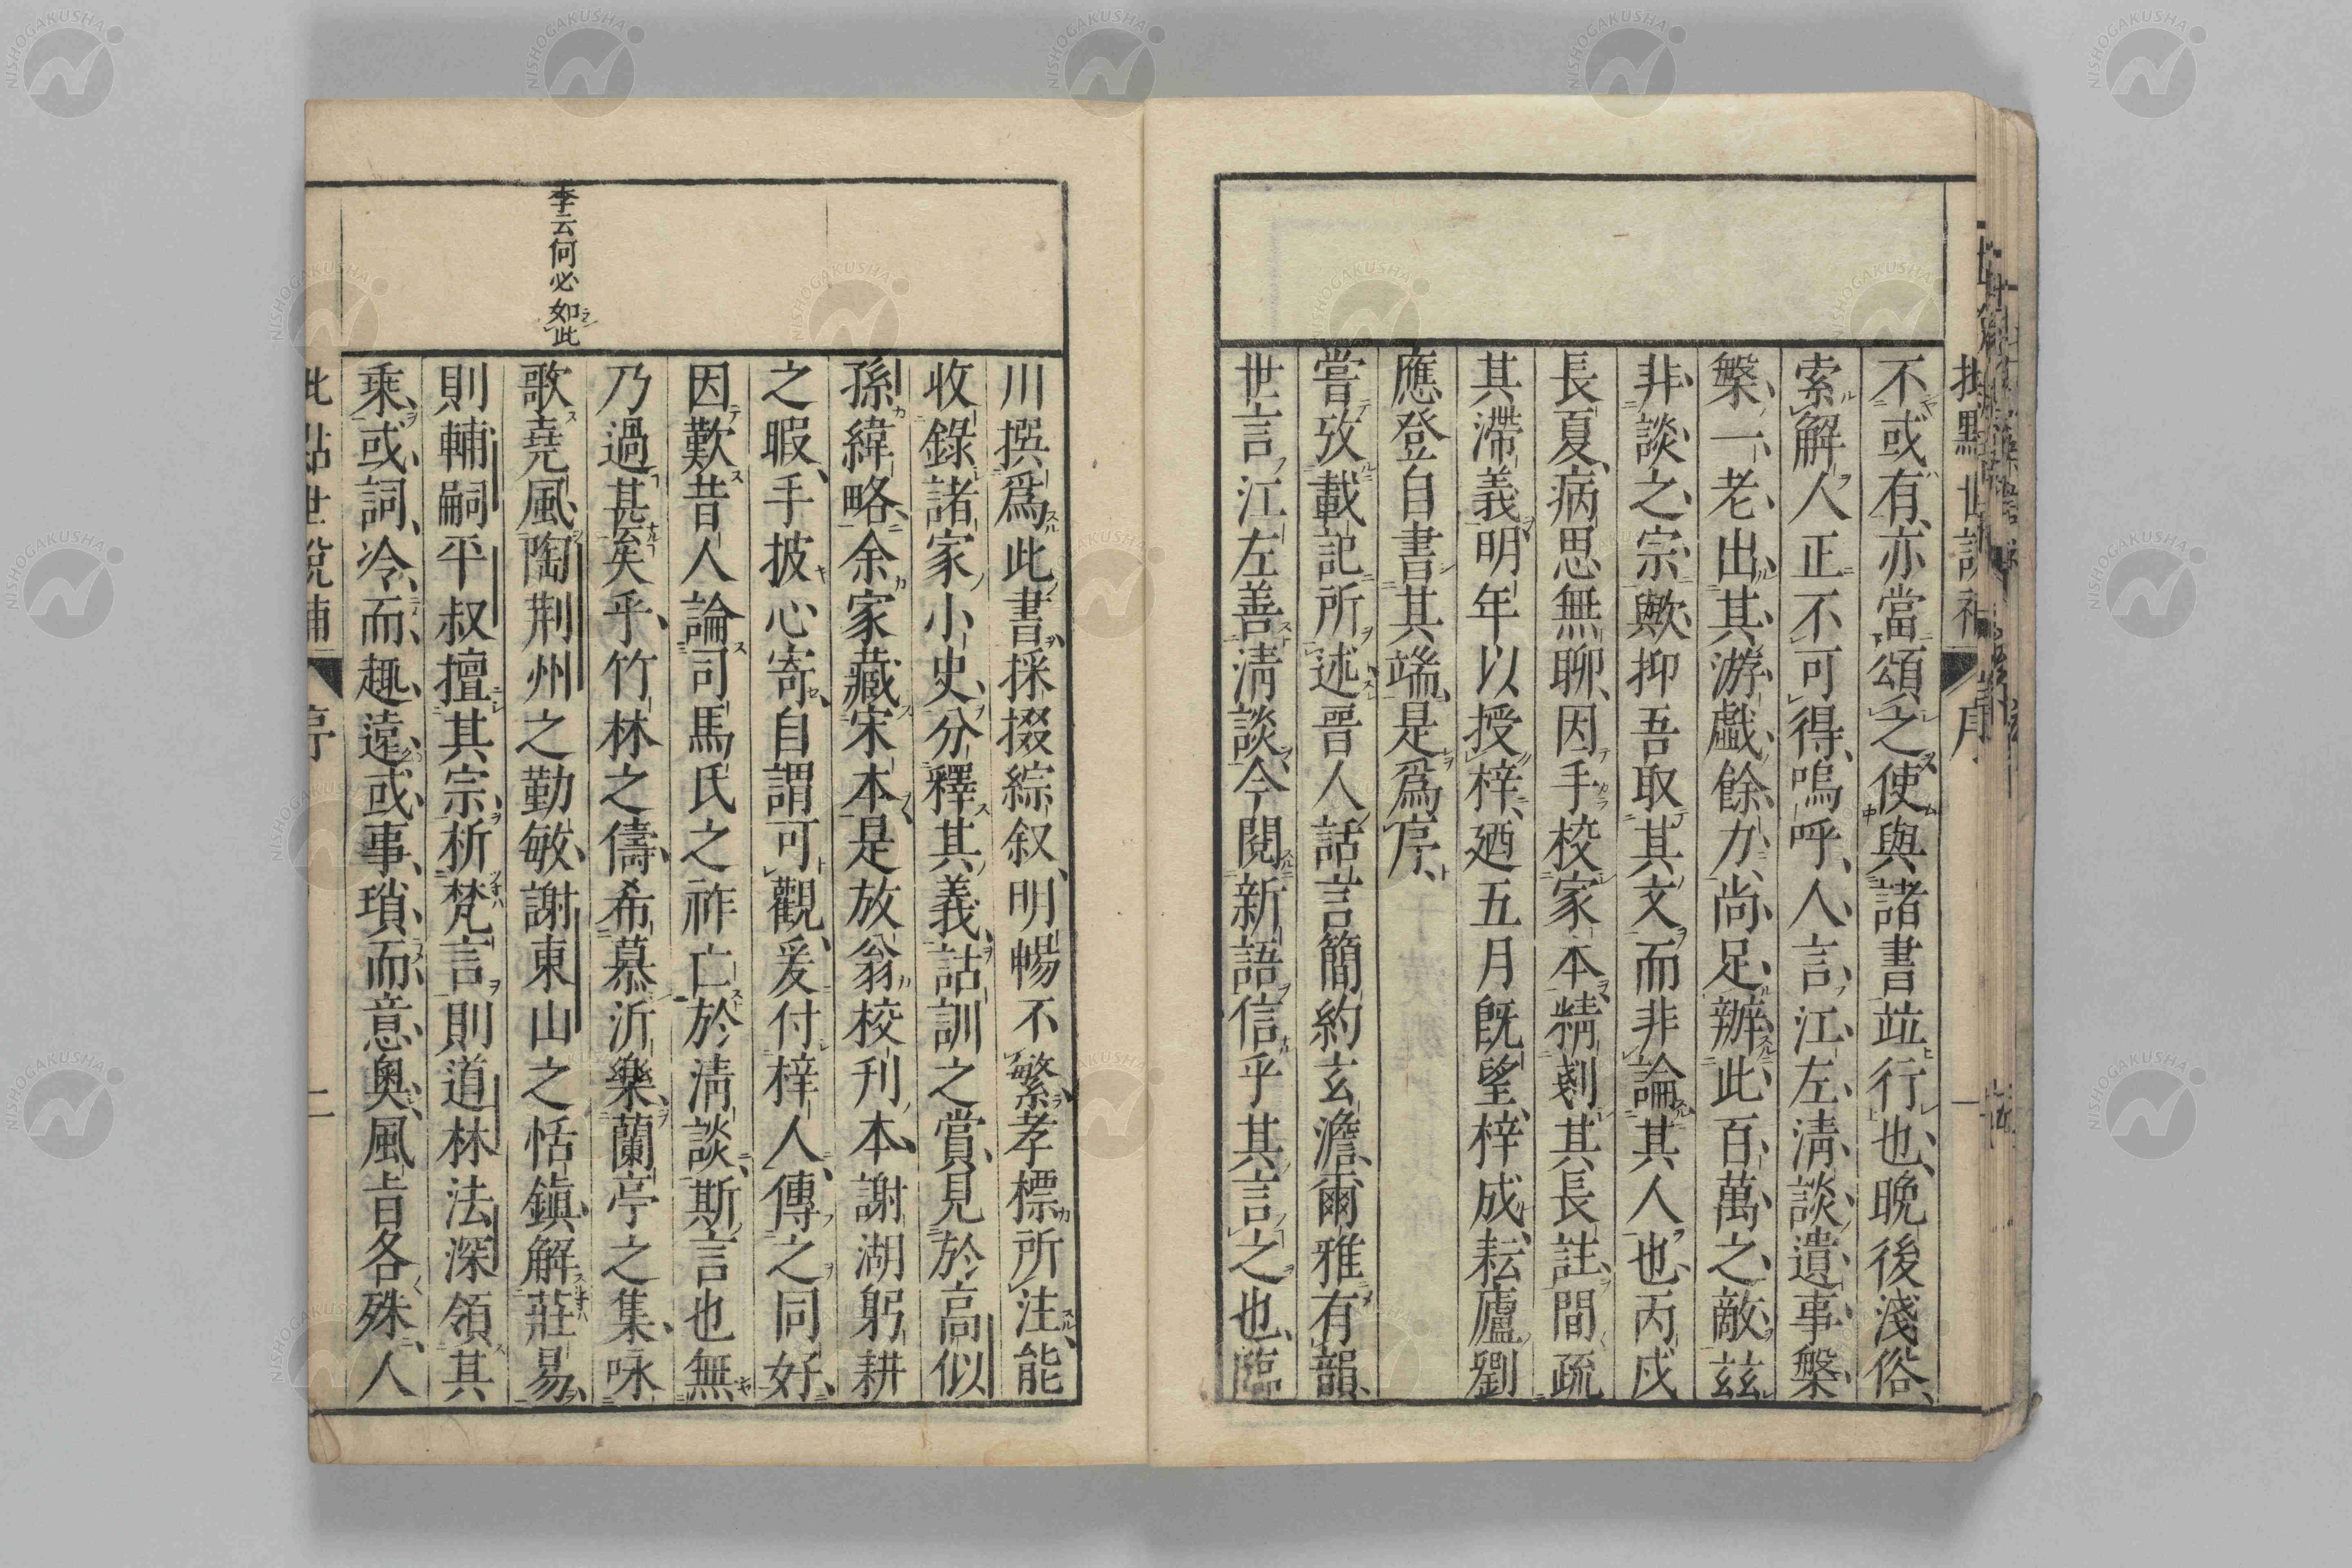 不或有亦當頌之使與諸書竝行也晚後淺俗
索解人正不可得嗚呼人言江左清談遺事槃
槃一老出其游戲餘力尚足辦此百萬之敵茲
非談之宗歟抑吾取其文而非論其人也丙戌
長夏病思無聊因手校家本精剗其長註間疏
其滯義明年以授梓廼五月既望梓成耘廬劉
應登自書其端是爲序
嘗攷載記所述晉人話言簡約玄澹爾雅有韻
世言江左善清談今閱新語信乎其言之也臨
川撰爲此書採掇綜叙明暢不繁孝標所注能
收錄諸家小史分釋其義詁訓之賞見於高似
孫緯略余家藏宋本是放翁校刊本謝湖躬耕
之暇手披心寄自謂可觀爰付梓人傳之同好
因歎昔人論司馬氏之祚亡於清談斯言也無
乃過甚矣乎竹林之儔希慕沂樂蘭亭之集咏
歌堯風陶荆州之勤敏謝東山之恬鎭解莊易
則輔嗣平叔擅其宗析梵言則道林法深領其
乘或詞冷而趣遠或事瑣而意奧風旨各殊人
李云何必如此
序
二
NISHOGAKUSHA